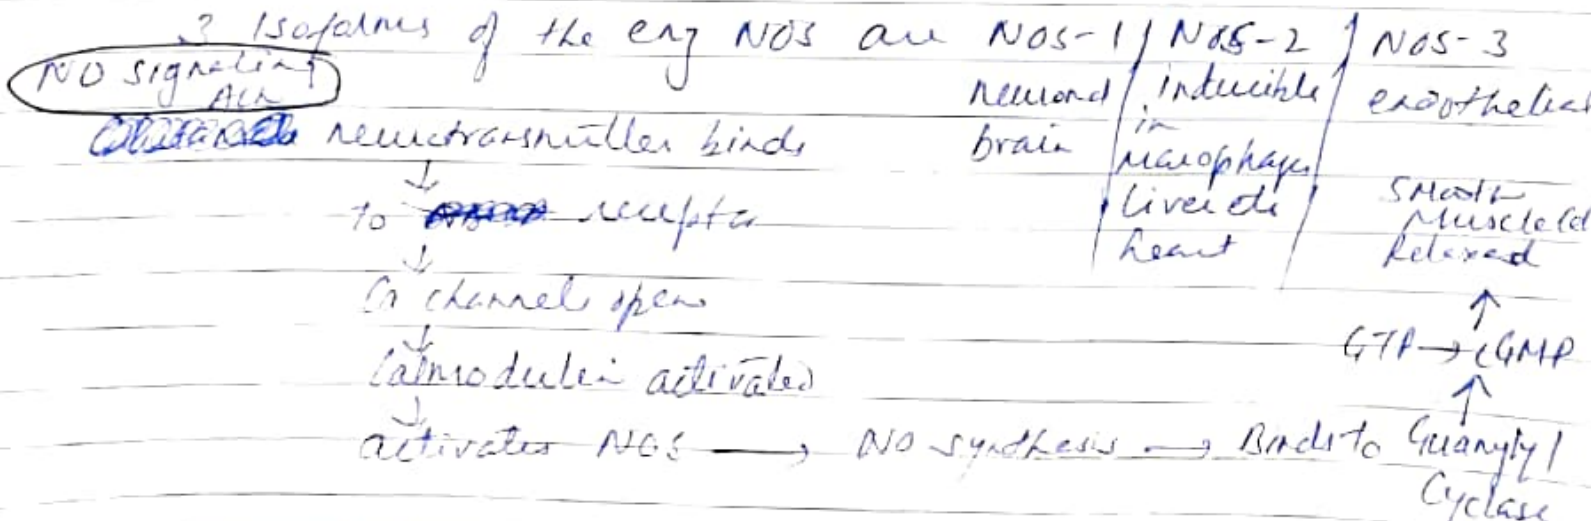 3 Isoforms of the enz NOS are NOS-1 / NOS-2 / NOS-3
NO signaling
ACh
neuronal
brain
inducible
in
macrophages
liver
heart
endothelial
neurotransmitter binds
↓
to receptor
↓
Ca channels open
↓
Calmodulin activated
↓
activates NOS → NO synthesis → Binds to Guanylyl
Cyclase
↑
GTP → cGMP
↑
Smooth
Muscle
Relaxed